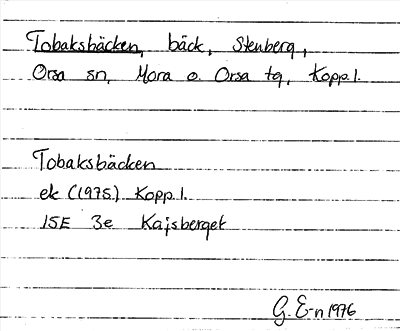 Tobaksbäcken, bäck, Stenberg,
Orsa sn, Mora o. Orsa tg, Kopp.l.
Tobaksbäcken
ek (1975) Kopp.l.
15E 3e Kajsberget
G. E-n 1976